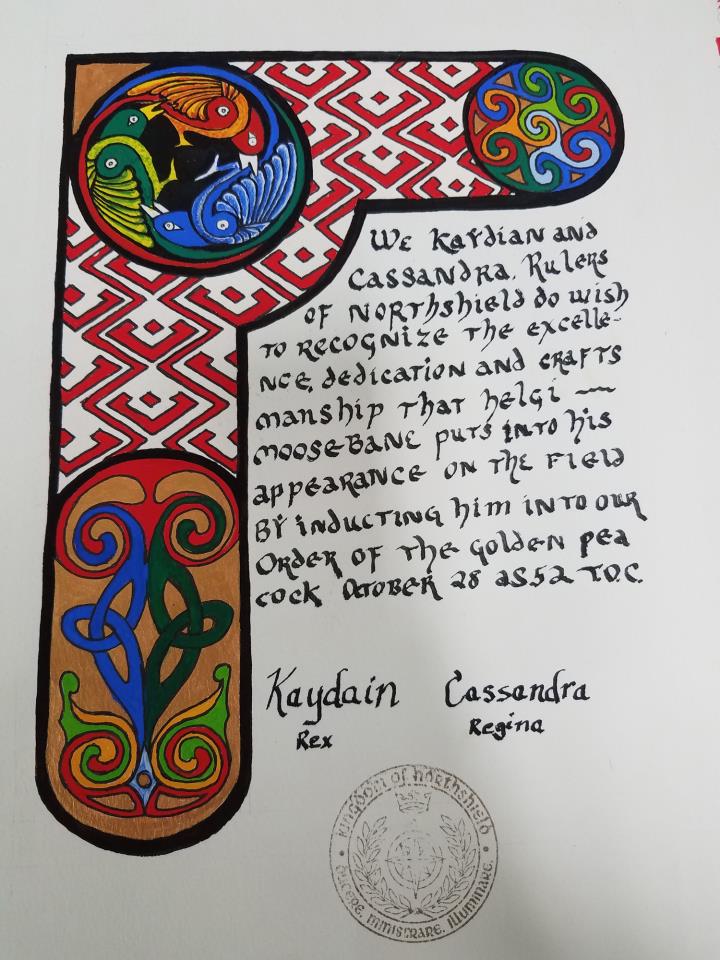 We Kaydian and
Cassandra, Rulers
of Northshield do wish
to recognize the excelle-
nce, dedication and crafts
manship that Helgi
Moosebane puts into his
appearance on the field
By inducting him into our
Order of the Golden Pea
cock October 28 AS52 T.O.C.
Kaydain Cassandra
Rex Regina
Kingdom of Northshield
Ducere, Ministrare, Illuminare.